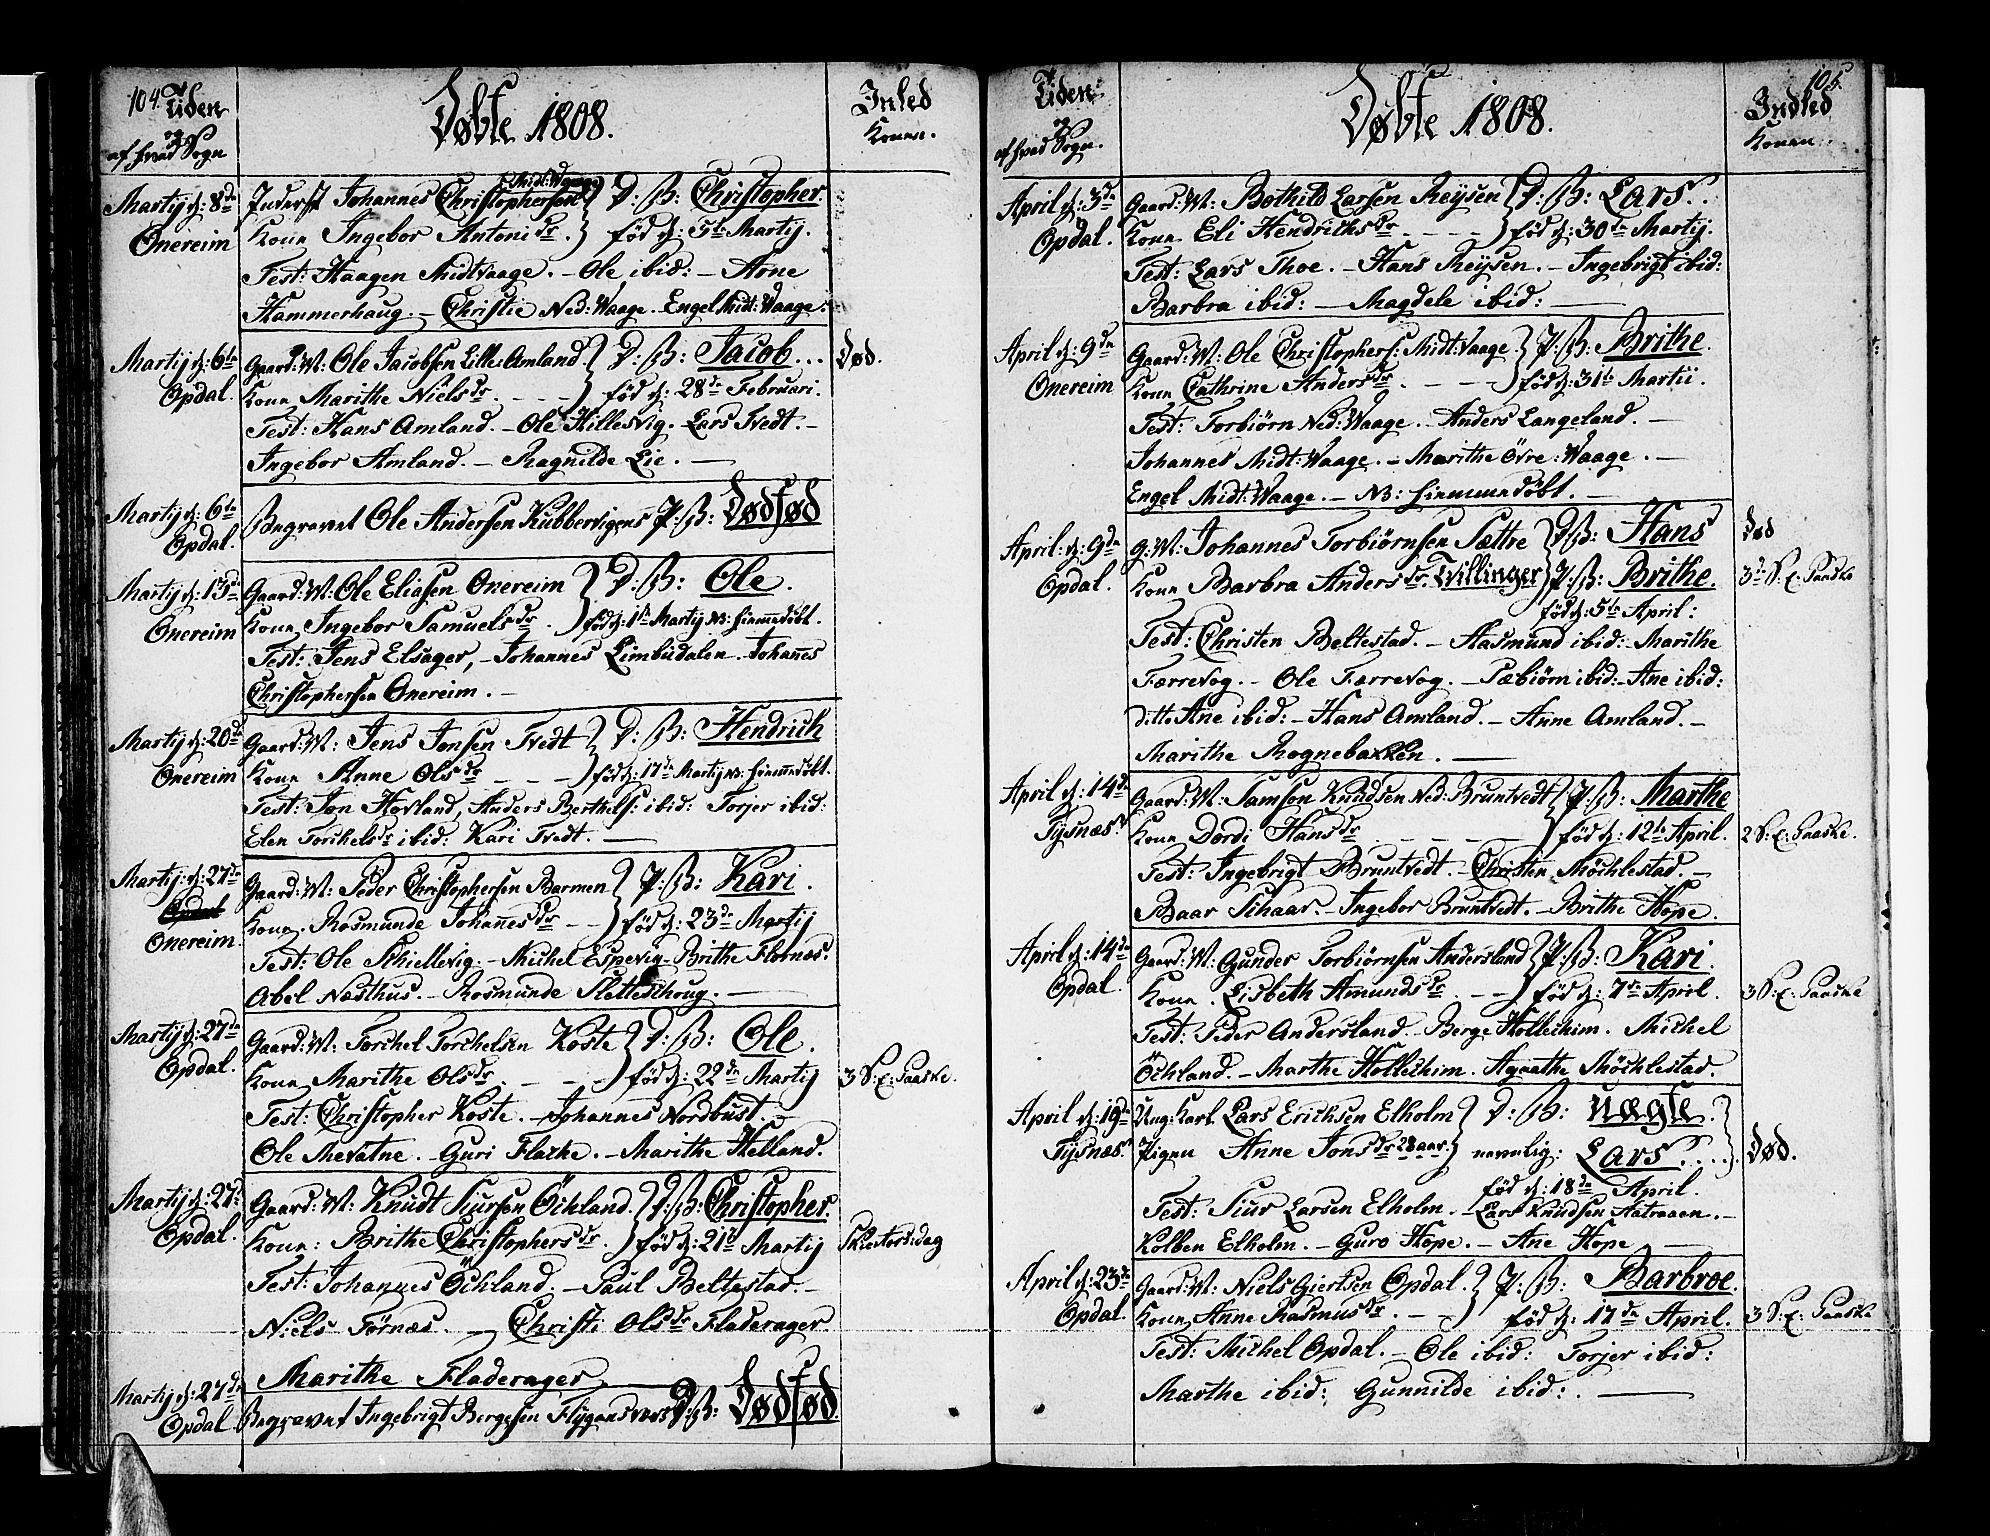 104. Tiden
og
af hvad Sogn
Døbte 1808.
Inled
Konen.
Martij d: 8de
Onereim
Inderst Johannes Christophersen Midt:Waage } D: B: Christopher
Kone Ingebor Antonidr. } fød d: 5te Martij.
Test: Haagen Midtvaage. - Ole ibid: - Arne
Hammerhaug. - Christie Ned: Waage. Engel Midt: Waage.
Martij d: 6te
Opdal.
Gaard: M: Ole Jacobsen Lille: Amland } D: B: Jacob...
Død.
Kone Marithe Nielsdr. - - - } fød d: 28de Februari.
Test: Hans Amland. - Ole Hillesvig. Lars Tvedt. -
Ingebor Amland. - Ragnilde Lie. -
Martij d: 6te
Opdal.
Begravet Ole Andersen Kubbervigens P: B: Dødfød
Martij d: 13de
Onereim
Gaard: M: Ole Eliasen Onereim } D: B: Ole.
Kone Ingebor Samuelsdr. } fød d: 1ste Martij NB: hiemmedøbt.
Test: Jens Elsager, - Johannes Limbudalen. Johannes
Christophersen Onereim. -
Martij d: 20de
Onereim
Gaard: M: Jens Jonsen Tvedt } D: B: Hendrich
Kone Anne Olsdr - - - } fød d: 17de Martij NB: hiemmedøbt.
Test: Jon Hovland, Anders Berthels: ibid: Torjer ibid:
Elen Torchelsdr ibid: Kari Tvedt. -
Martij: d: 27de
Opdal
Onereim.
Gaard: M: Peder Christophersen Barmen } P: B: Kari.
Kone. Rosmunde Johannesdr - - } fød d: 23de Martij
Test: Ole Skiellevig. - Michel Espevig - Brithe Flornæs.
Abel Næsthus. - Rosmunde Sletteshoug. -
Martij d: 27de
Opdal.
Gaard: M: Torchel Torchelsen Koste } D: B: Ole.
Kone Marithe Olsdr. - - - } fød d: 22de Martij
3 S: E: Paaske.
Test: Christopher Koste. - Johannes Nordbust. -
Ole Mevatne. - Guri Flazke. - Marithe Helland.
Martij d: 27d
Opdal.
Gaard: M: Knudt Siursen Öchland. } D: B: Christopher
Kone: Brithe Christophersdr. } fød d: 21de Martij
Skiertorsdag
Test: Johannes Öchland. - Paul Beltestad. -
Niels Tørnæs. - Christi Olsdr Fladerager.
Marithe Fladerager -
Martij d: 27de
Opdal.
Begravet Ingebrigt Bergesen Flygansværs D: B: Dødfød.
105.
Tiden
og
af hvad Sogn.
Døbte 1808.
Indled
Konen.
April d: 3de
Opdal.
Gaard: M: Bothild Larsen Reysen } D: B: Lars.
Kone Eli Hendrichsdr. - - - - } fød d: 30te Martij.
Test: Lars Thoe. - Hans Reysen. - Ingebrigt ibid:
Barbra ibid: - Magdele ibid: -
April d: 9de
Onereim
Gaard: M: Ole Christophers: Midt: Vaage } P: B: Brithe.
Kone Cathrine Andersdr. - - - } fød d: 31te Martii.
Test: Torbiörn Ned: Waage. - Anders Langeland. -
Johannes Midt: Waage. - Marithe Övre: Waage. -
Engel Midt: Waage. - NB: hiemmedøbt. -
April: d: 9de
Opdal.
G: M: Johannes Torbiörnsen Sættre } D: B: Hans
Død
Kone Barbra Andersdr. Tvillinger } P: B: Brithe.
3de S: E: Paaske
fød d: 5te April:
Test: Christen Beltestad. - Aasmund ibid: - Marithe
Færrevog. - Ole Færrevog. - Pæbiörn ibid: - Ane ibid:
ditto Ane ibid: - Hans Amland. - Anne Amland. -
Marithe Rognebakken. -
April d: 14de
Tysnæs.
Gaard: M: Samson Knudsen Ned: Bruntvedt } P: B: Marthe
Kone Dordi Hansdr - - - - - } fød d: 12te April.
2 S: E: Paaske.
Test: Ingebrigt Bruntvedt. - Christen Möchlestad. -
Baar Schaar. - Ingebor Bruntvedt. - Brithe Hope.
April d: 14de
Opdal.
Gaard: M: Gunder Torbiörnsen Andersland } P: B: Kari.
Kone. Lisbeth Amundsdr. - - } fød d: 7de April.
3 S: E: Paaske
Test: Peder Andersland. Berge Hollekim. Michel
Öchland. - Marthe Hollekim. Agaathe Möchlestad.
April d: 19de
Tysnæs.
Ung: Karl Lars Erichsen Elholm } D: B: Uægte.
Pigen Anne Jonsdr 28 aar } navnlig: Lars....
Død.
fød d: 18de April.
Test: Siur Larsen Elholm. - Lars Knudsen Aatraaen. -
Kolben Elholm. - Guro Hope. - Ane Hope -
April d: 23de
Opdal.
Gaard: M: Niels Giertsen Opdal. } P: B: Barbroe.
Kone, Anne Rasmusdr. - - } fød d: 17de April.
3 S: E: Paaske
Test: Michel Opdal. - Ole ibid: Torjer ibid:
Marthe ibid: Gunnilde ibid: -